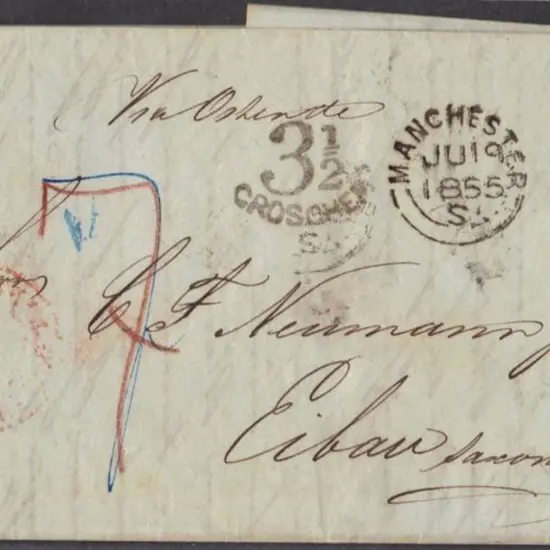 Via Ostende
3½
GROSCHEN
MANCHESTER
JU 19
1855
S
7
C F Neumann
Eibau
Saxon